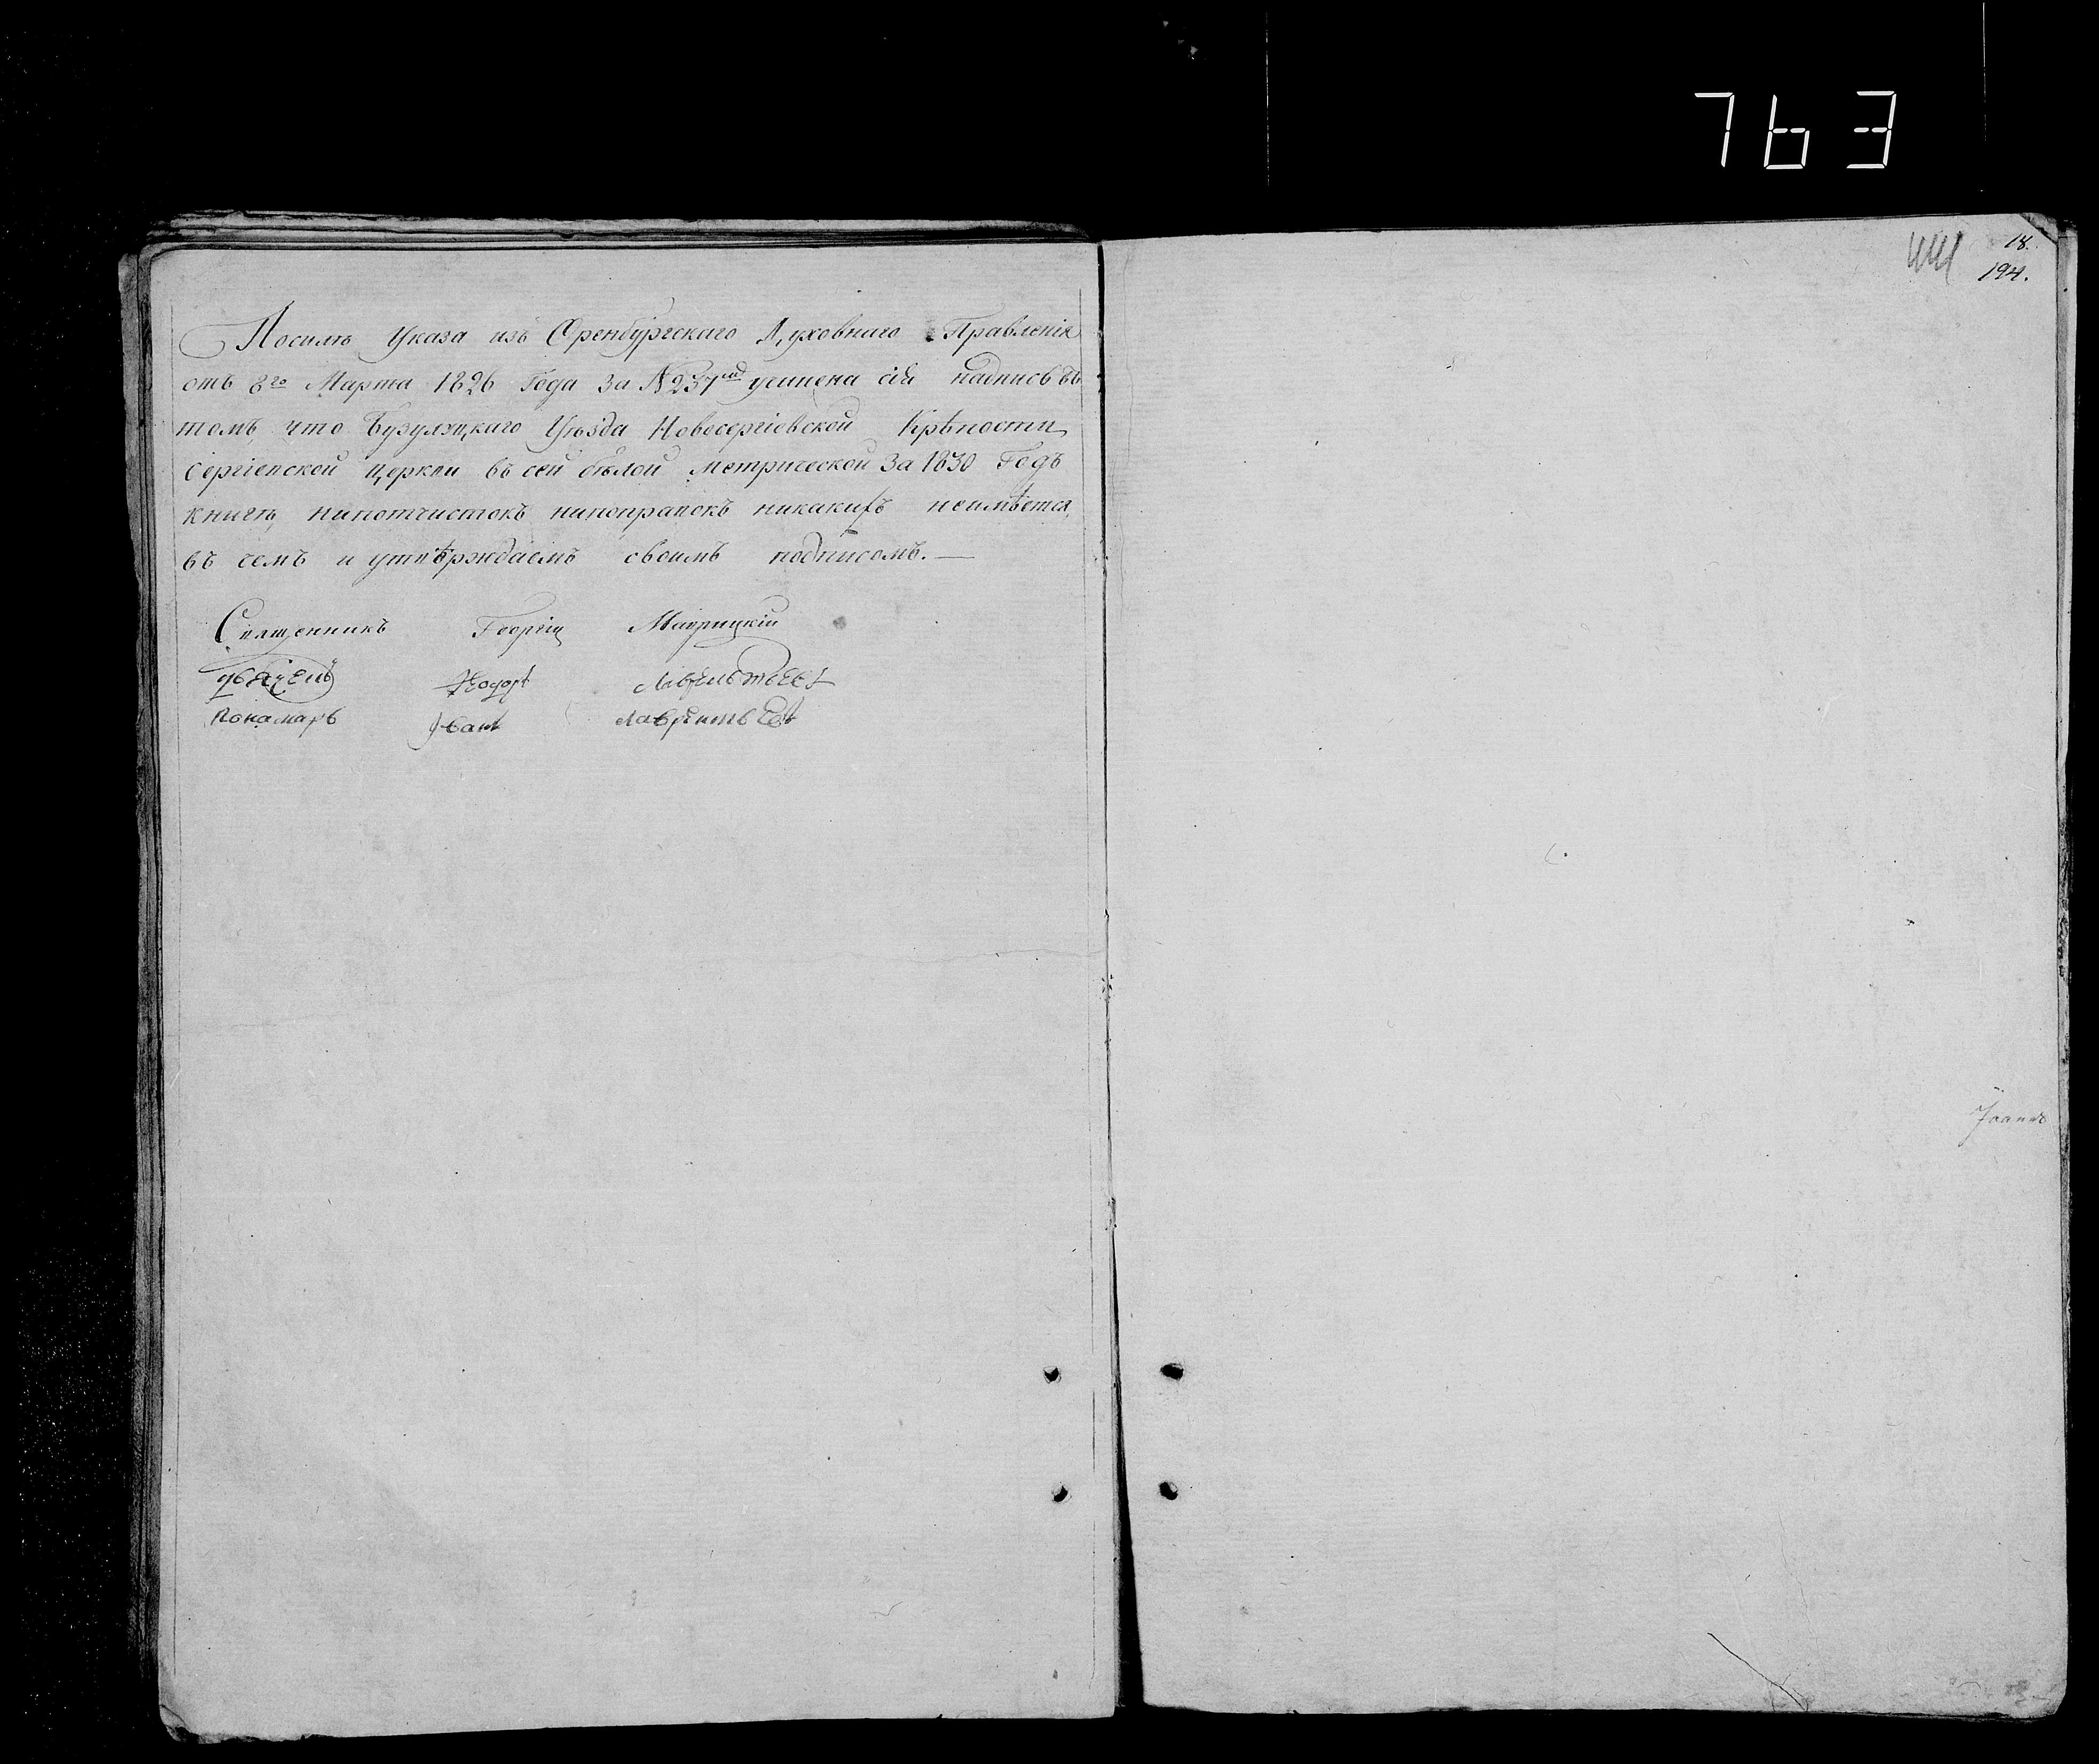 763
18.
194.
441
Посилѣ Указа изъ Оренбургскаго Духовнаго Правленія
отъ 8го Марта 1826 Года за №237мъ учинена сія надпись въ
томъ, что Бузулуцкаго Уѣзда Новосергіевской Крѣпости
Сергіевской церкви въ сей бѣлой метрической за 1830 Годъ
книгѣ, нипотчистокъ нипоправокъ никакихъ неимѣется,
въ чемъ и утвѣрждаемъ своимъ подписомъ.—
Священникъ Георгій Маврицкій
Дьячекъ Ѳедоръ Лаврентьевъ
Пономарь Иванъ Лаврентьевъ
Іоаннъ